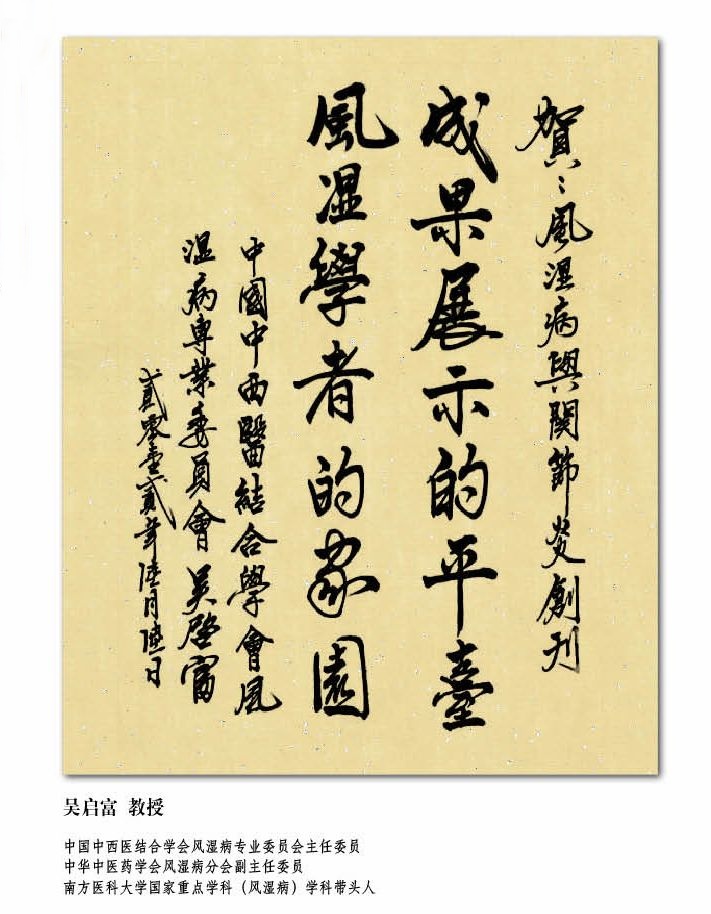 賀：風湿病與関節炎創刊
成果展示的平臺
風湿學者的家園
中國中西醫結合學會風
湿病専業委員會 吴啓富
貳零壹貳年陸月陸日
吴启富 教授
中国中西医结合学会风湿病专业委员会主任委员
中华中医药学会风湿病分会副主任委员
南方医科大学国家重点学科（风湿病）学科带头人